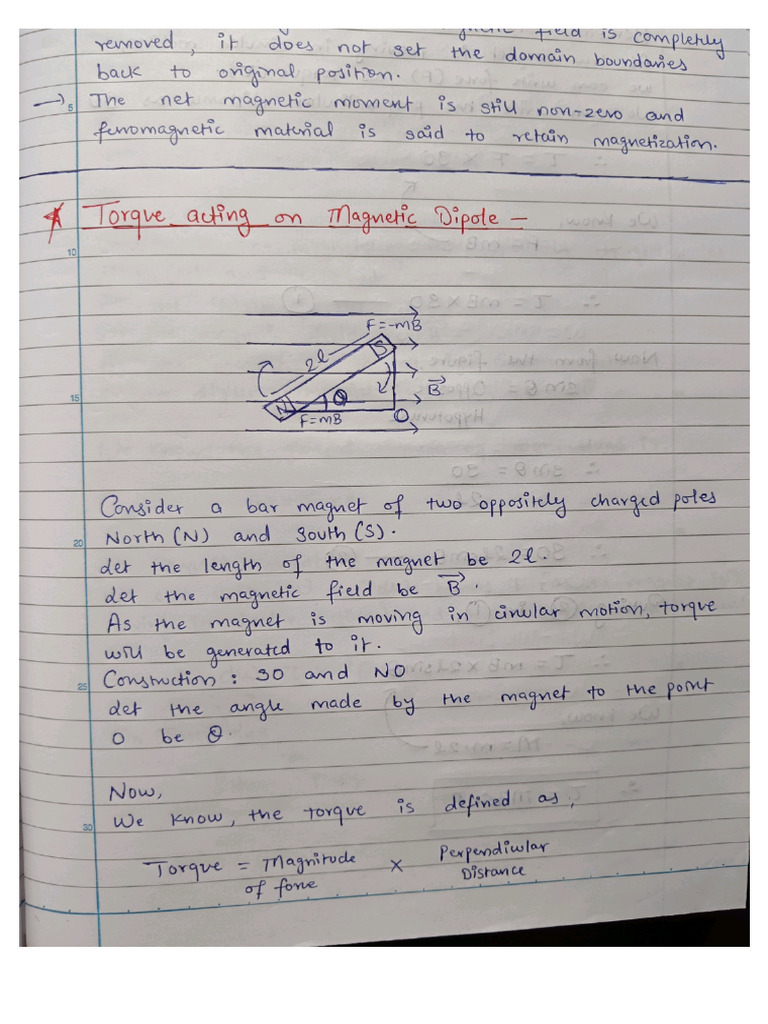 field is completely
removed, it does not set the domain boundaries
back to original position.
→ The net magnetic moment is still non-zero and
5
ferromagnetic material is said to retain magnetization.
Torque acting on Magnetic Dipole –
10
F=-mB
2l
S
B
15
N θ
F=mB
O
Consider a bar magnet of two oppositely charged poles
20 North (N) and South (S).
Let the length of the magnet be 2l.
Let the magnetic field be B.
As the magnet is moving in circular motion, torque
will be generated to it.
25 Construction : SO and NO
Let the angle made by the magnet to the point
O be θ.
Now,
30 We know, the torque is defined as,
Torque = Magnitude of force × Perpendicular Distance